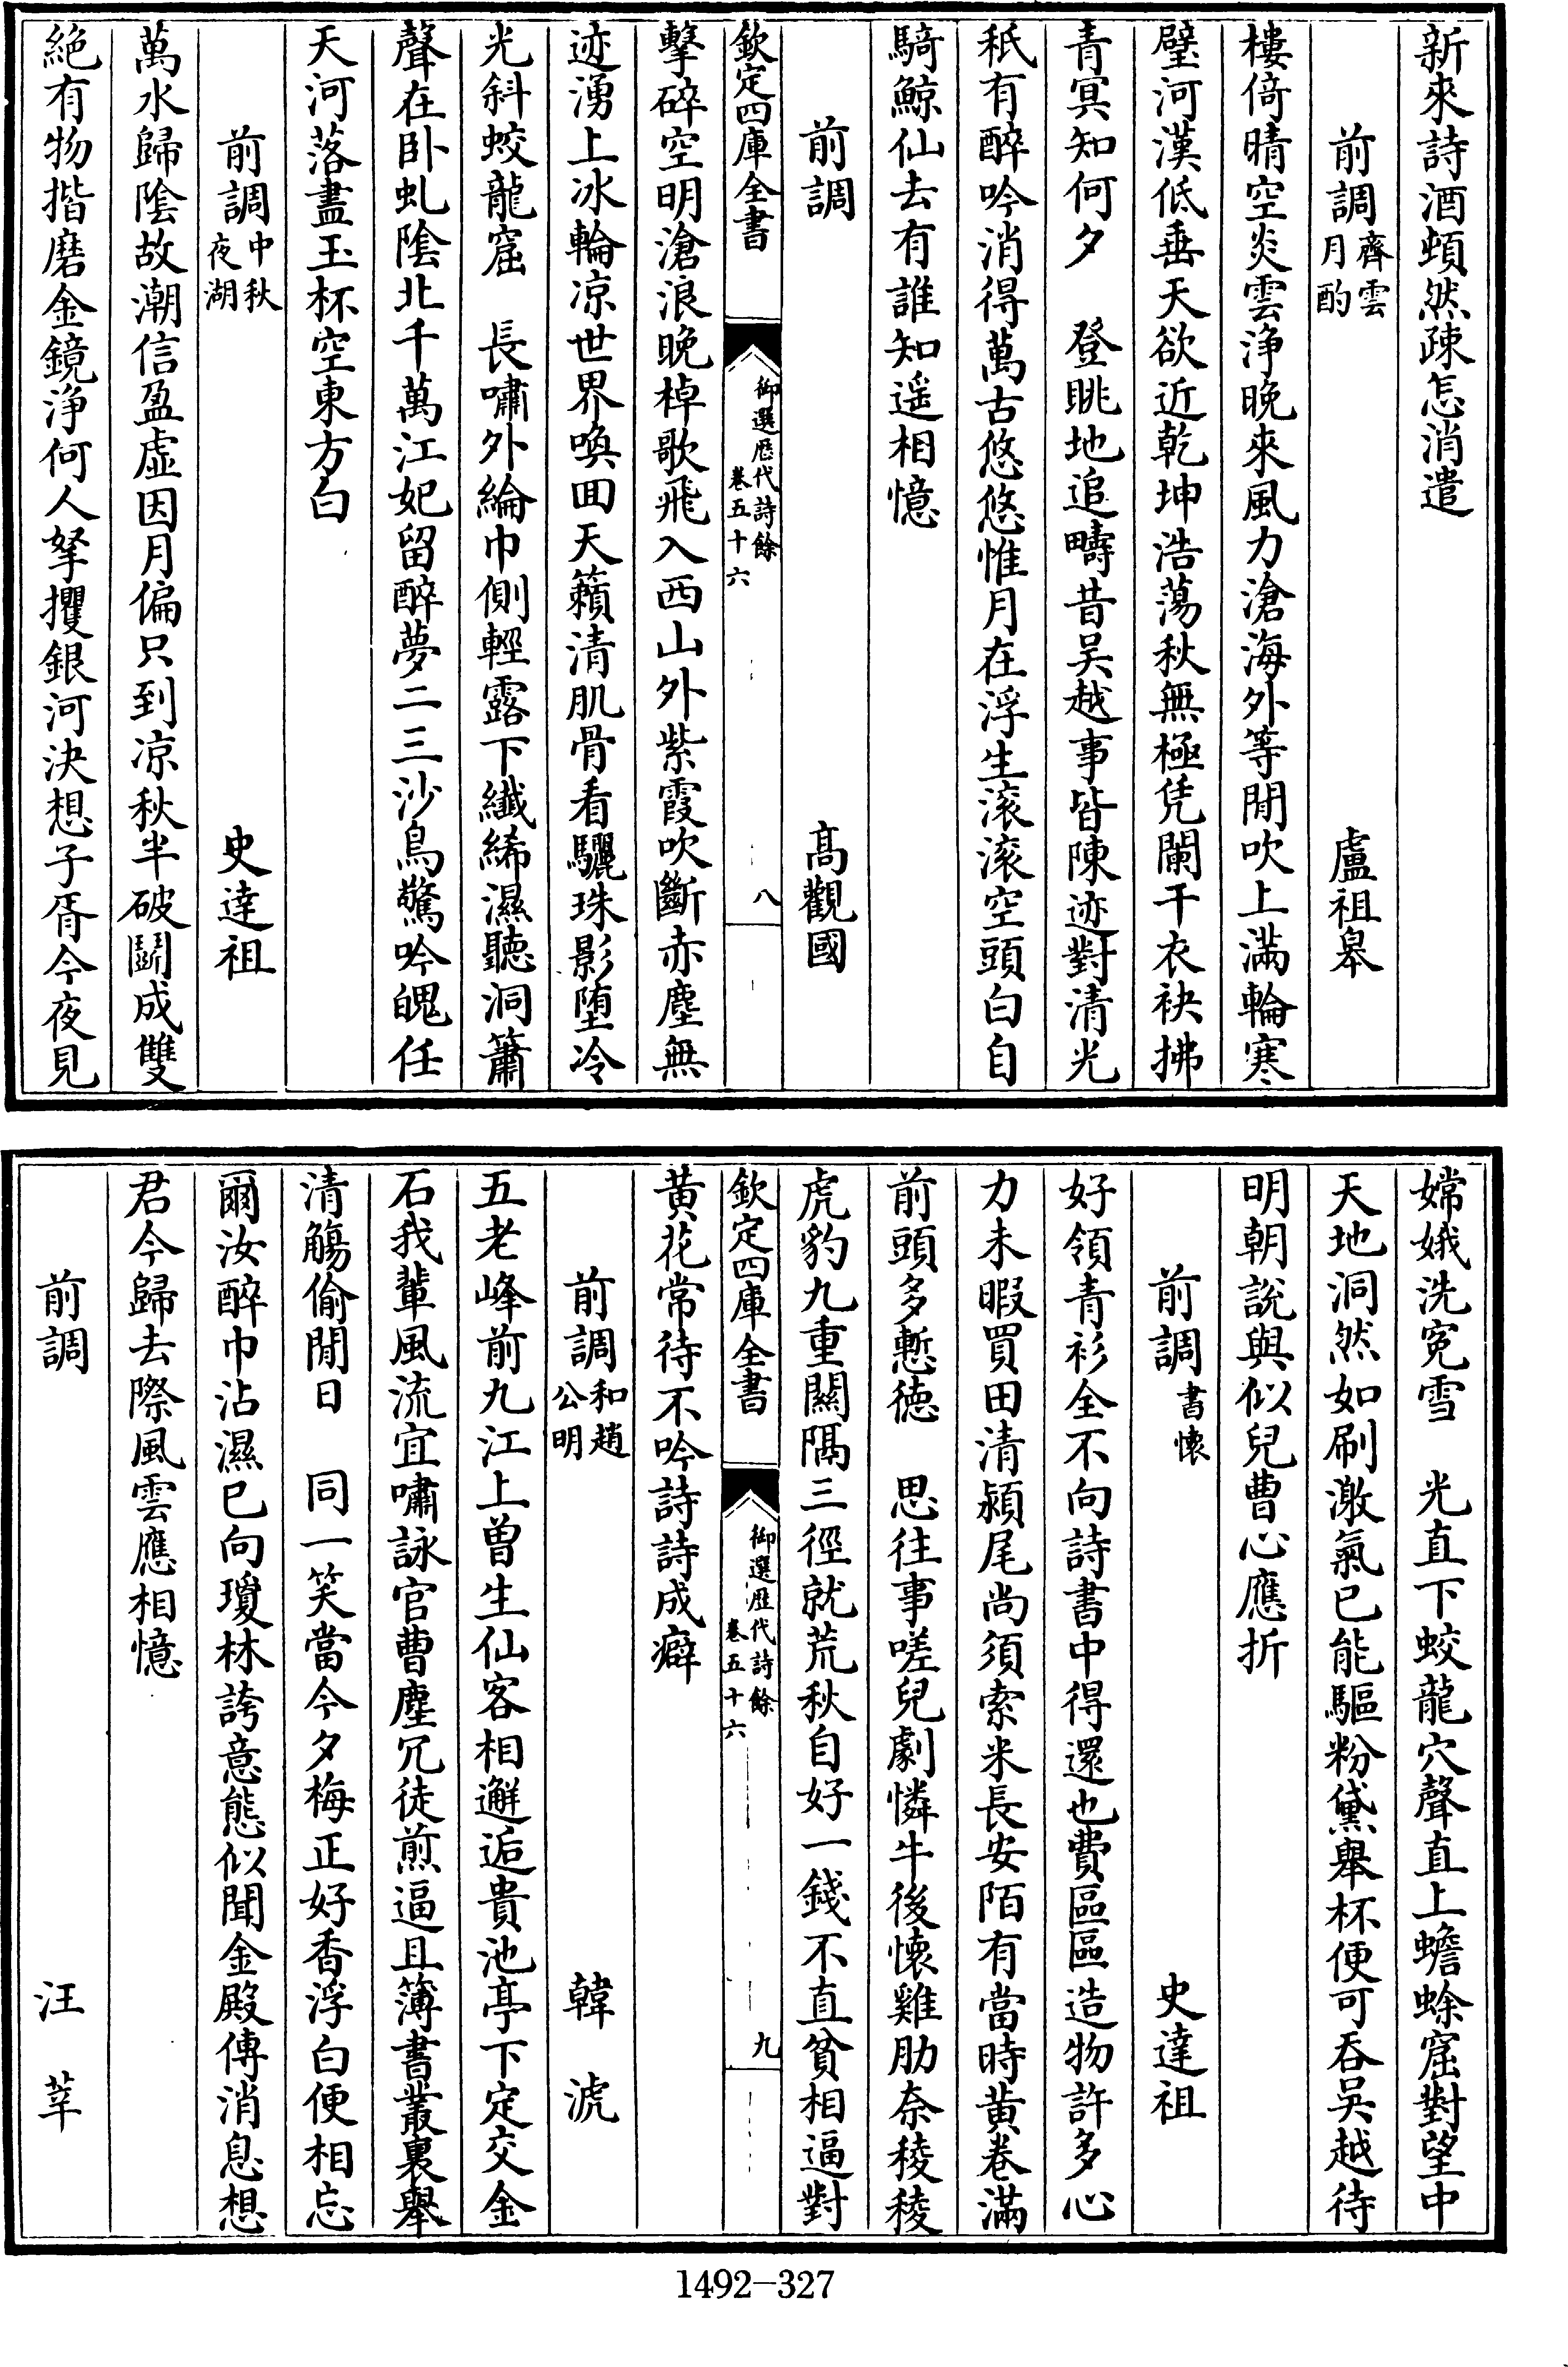 新來詩酒頓然疎怎消遣
前調齊雲月酌　盧祖皋
樓倚晴空炎雲浄晚來風力滄海外等閒吹上滿輪寒
璧河漢低垂天欲近乾坤浩蕩秋無極凭闌干衣袂拂
青冥知何夕　登眺地追疇昔吴越事皆陳迹對清光
秖有醉吟消得萬古悠悠惟月在浮生滚滚空頭白自
騎鯨仙去有誰知遥相憶
前調　髙觀國
欽定四庫全書　御選歷代詩餘卷五十六　八
擊碎空明滄浪晚棹歌飛入西山外紫霞吹斷赤塵無
迹湧上冰輪凉世界喚回天籟清肌骨看驪珠影堕冷
光斜蛟龍窟　長嘯外綸巾側輕露下纖絺濕聽洞簫
聲在卧虬陰北千萬江妃留醉夢二三沙鳥驚吟魄任
天河落盡玉杯空東方白
前調中秋夜湖　史達祖
萬水歸陰故潮信盈虚因月偏只到凉秋半破鬭成雙
絶有物揩磨金鏡浄何人拏攫銀河決想子胥今夜見
嫦娥洗寃雪　光直下蛟龍穴聲直上蟾蜍窟對望中
天地洞然如刷激氣已能驅粉黛舉杯便可吞吴越待
明朝説與似兒曹心應折
前調書懷　史達祖
好領青衫全不向詩書中得還也費區區造物許多心
力未暇買田清潁尾尚須索米長安陌有當時黄卷滿
前頭多慙德　思往事嗟兒劇憐牛後懷雞肋奈稜稜
虎豹九重闗隔三徑就荒秋自好一錢不直貧相逼對
欽定四庫全書　御選歷代詩餘卷五十六　九
黄花常待不吟詩詩成癖
前調和趙公明　韓淲
五老峰前九江上曾生仙客相邂逅貴池亭下定交金
石我輩風流宜嘯詠官曹塵冗徒煎逼且簿書叢裏舉
清觴偷閒日　同一笑當今夕梅正好香浮白便相忘
爾汝醉巾沾濕已向瓊林誇意態似聞金殿傳消息想
君今歸去際風雲應相憶
前調　汪莘
1492-327